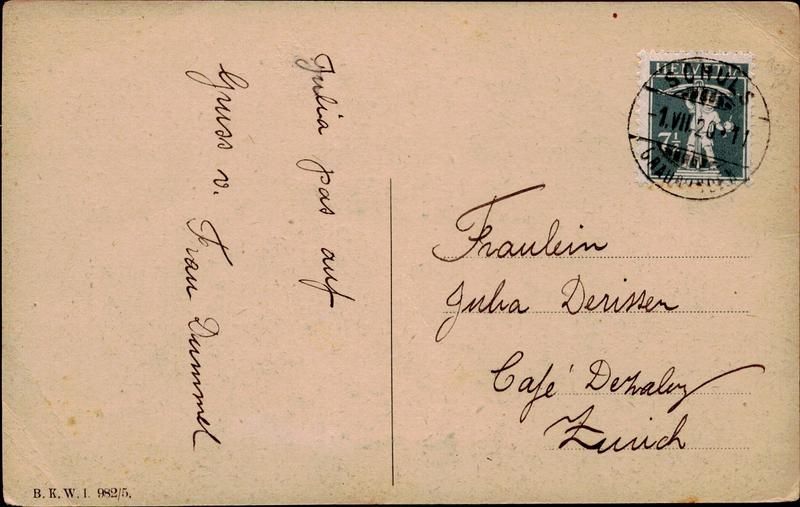 Julia pas auf
Gruss v. Frau Dummel
HELVETIA
7½
SCHULS
-1.VII.20
(GRAUBÜNDEN)
Fraulein
Julia Derissen
Café Dezaley
Zurich
B. K. W. I. 982/5.